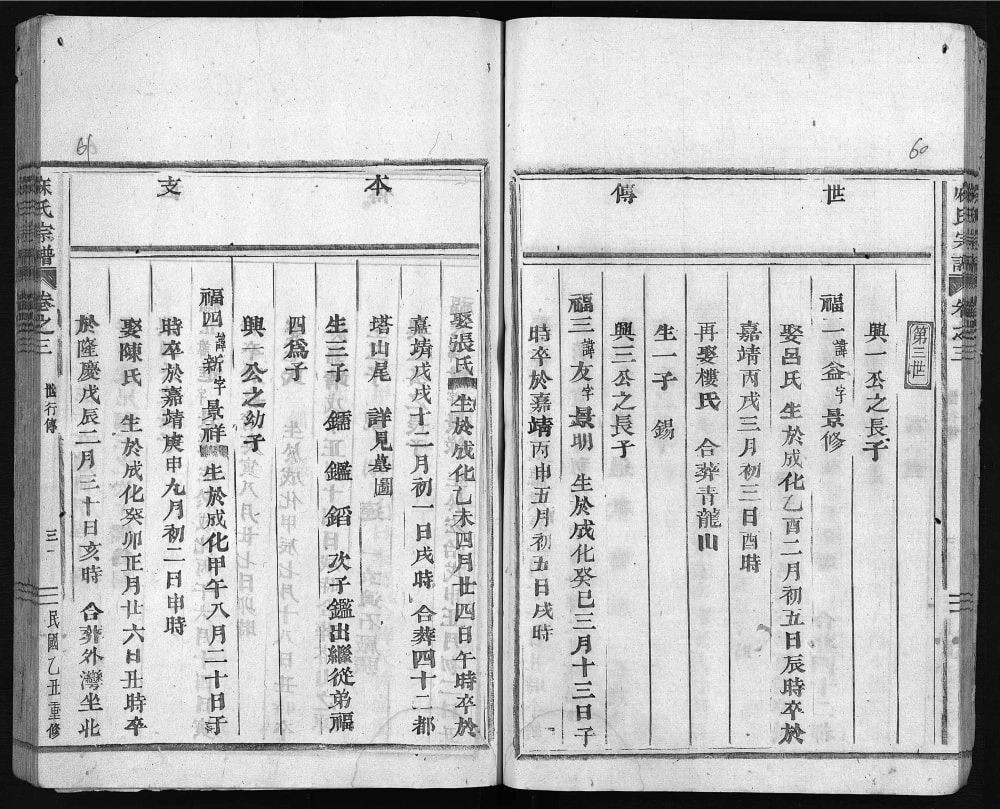 60
世傳
第三世
興一公之長子
福一諱益字景修
娶呂氏 生於成化乙酉二月初五日辰時卒於
嘉靖丙戌三月初三日酉時
再娶樓氏 合葬青龍山
生一子 錫
興三公之長子
福三諱友字景明 生於成化癸巳三月十三日子
時卒於嘉靖丙申五月初五日戌時
氏宗譜 卷之三
本支
娶張氏 生於成化乙未四月廿四日午時卒於
嘉靖戊戌十二月初一日戌時 合葬四十二都
塔山尾 詳見墓圖
生三子 鐳 鑑 鎦 次子鑑出繼從弟福
四爲子
興一公之幼子
福四諱新字景祥 生於成化甲午八月二十日子
時卒於嘉靖庚申九月初二日申時
娶陳氏 生於成化癸卯正月廿六日丑時卒
於隆慶戊辰二月三十日亥時 合葬外灣坐北
氏宗譜 卷之三 世行傳 三一 民國乙丑重修